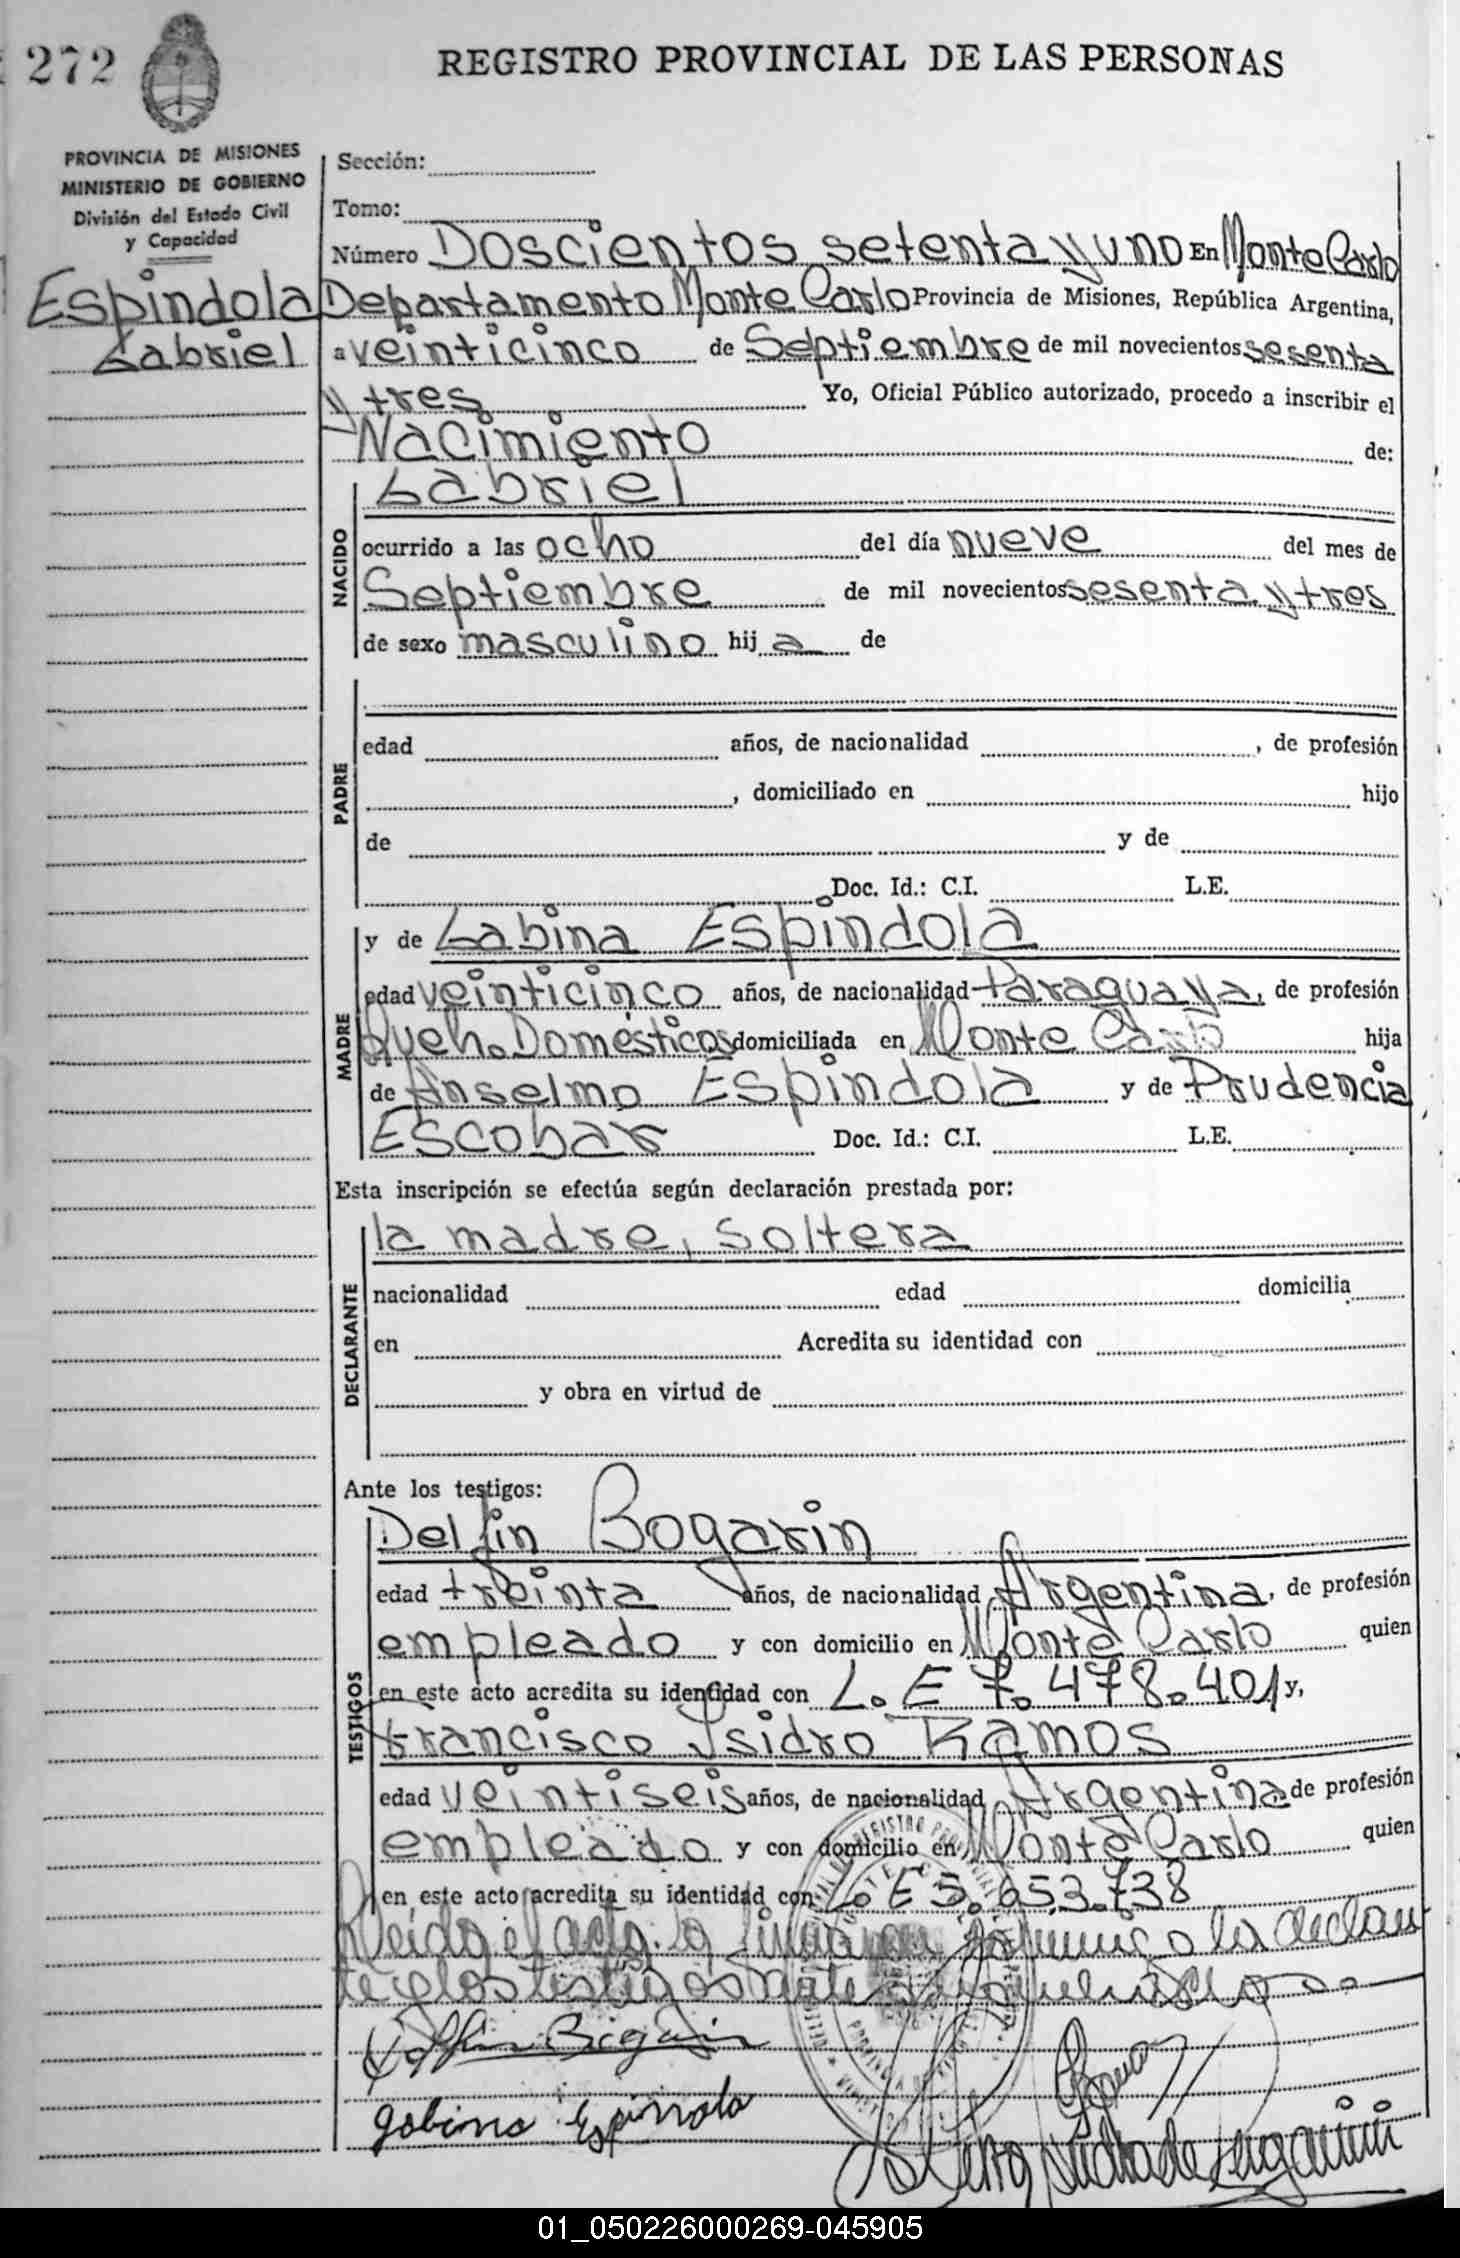 272
REGISTRO PROVINCIAL DE LAS PERSONAS
PROVINCIA DE MISIONES
MINISTERIO DE GOBIERNO
División del Estado Civil
y Capacidad
Espindola
Gabriel
Sección:
Tomo:
Número Doscientos setenta y uno En Monte Carlo
Departamento Monte Carlo Provincia de Misiones, República Argentina,
a veinticinco de Septiembre de mil novecientos sesenta
y tres Yo, Oficial Público autorizado, procedo a inscribir el
Nacimiento de:
NACIDO
Gabriel
ocurrido a las ocho del día nueve del mes de
Septiembre de mil novecientos sesenta y tres
de sexo masculino hij a de
PADRE
edad años, de nacionalidad , de profesión
, domiciliado en hijo
de y de
Doc. Id.: C.I. L.E.
MADRE
y de Gabina Espindola
edad veinticinco años, de nacionalidad Paraguaya, de profesión
Queh. Domésticos domiciliada en Monte Carlo hija
de Anselmo Espindola y de Prudencia
Escobar Doc. Id.: C.I. L.E.
Esta inscripción se efectúa según declaración prestada por:
DECLARANTE
la madre, soltera
nacionalidad edad domicilia
en Acredita su identidad con
y obra en virtud de
Ante los testigos:
TESTIGOS
Delfin Bogarin
edad treinta años, de nacionalidad Argentina, de profesión
empleado y con domicilio en Monte Carlo quien
en este acto acredita su identidad con L. E 7.478.401 y,
Francisco Isidro Ramos
edad veintiseis años, de nacionalidad Argentina de profesión
empleado y con domicilio en Monte Carlo quien
en este acto acredita su identidad con L. E 5.653.738
Leida el acta la firman conmigo la declaran
te y los testigos
Delfin Bogarin
gabina Espinola
01_050226000269-045905